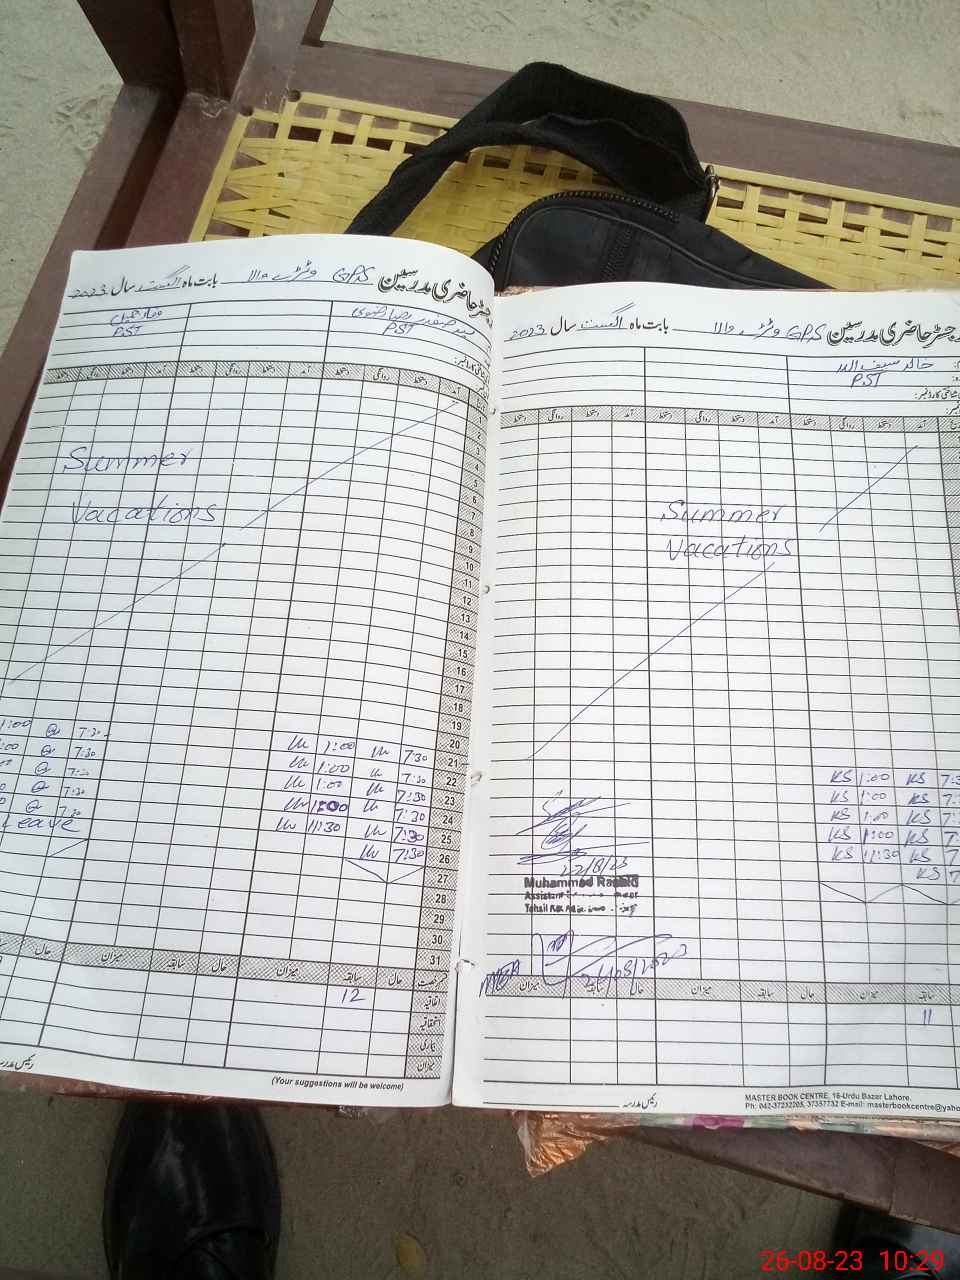 رجسٹر حاضری مدرسین GPS وٹرے والا بابت ماہ اگست سال 2023
PST PST
آمد دستخط روانگی دستخط آمد دستخط روانگی دستخط
Summer
Vacations
1
2
3
4
5
6
7
8
9
10
11
12
13
14
15
16
17
18
19
20
21 7:30 1:00 7:30 1:00
22 7:30 1:00 7:30 :00
23 7:30 1:00 7:30
24 7:30 1:00 7:30
25 7:30 11:30 7:30
26 7:30 Leave
27
28
29
30
31
حال سابقہ میزان حال سابقہ میزان حال
اتفاقیہ 12
استحقاقیہ
بیماری
میزان
رئیس مدرسہ
(Your suggestions will be welcome)
رجسٹر حاضری مدرسین GPS وٹرے والا بابت ماہ اگست سال 2023
خالد سیف اللہ
PST
آمد دستخط روانگی دستخط آمد دستخط روانگی دستخط
Summer
Vacations
KS 1:00 KS 7:3
KS 1:00 KS 7:
KS 1:00 KS 7:
KS 1:00 KS 7:
KS 11:30 KS 7
KS 7
22/8/23
Muhammad Rashid
Assistant
Tehsil
MEA
24/08/2023
سابقہ میزان حال سابقہ میزان حال سابقہ میزان
11
رئیس مدرسہ
MASTER BOOK CENTRE, 16-Urdu Bazar Lahore.
Ph: 042-37232205, 37357732 E-mail: masterbookcentre@yaho
26-08-23 10:29